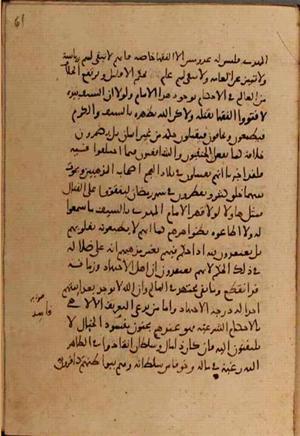 المهدي فليس له عدو مبين الا الفقها خاصة فانهم لا تبقى لهم رياسة
ولا تمييز عن العامة ولا يبقى لهم علم بحكم الا قليل ويرتفع الخلاف
من العالم في الاحكام بوجود هذا الامام ولولا ان السيف بيده
لافتوا الفقها بقتله ولاكن الله يظهره بالسيف والكرم
فيطمعون ويخافون فيقبلون حكمه من غير ايمان بل يضمرون
خلافه كما يفعل الحنفيون والشافعيون فيما اختلفوا فيه
فلقد اخبرنا انهم يقتتلون في بلاد العجم اصحاب المذهبين ويموت
بينهما خلق كثير ويفطرون في شهر رمضان ليتقووا على القتال
فمثل هاولا لولا قهر الامام المهدي بالسيف ما سمعوا
له ولا اطاعوه بظواهرهم كما انهم لا يطيعونه بقلوبهم
بل يعتقدون فيه اذا حكم فيهم بغير مذهبهم انه على ضلالة
في ذلك الحكم لانهم يعتقدون ان اهل الاجتهاد وزمانه
قد انقطع وما بقي مجتهد في العالم وان الله لا يوجد بعد ايمتهم
احدا له درجة الاجتهاد واما من يدعي التعريف الالاهي
بالاحكام الشرعية فهو عندهم مجنون مفسود الخيال لا
يلتفتون اليه فان كان ذا مال وسلطان انقادوا في الظاهر
اليه رغبة في ماله وخوفا من سلطانه وهم ببواطنهم كافرون